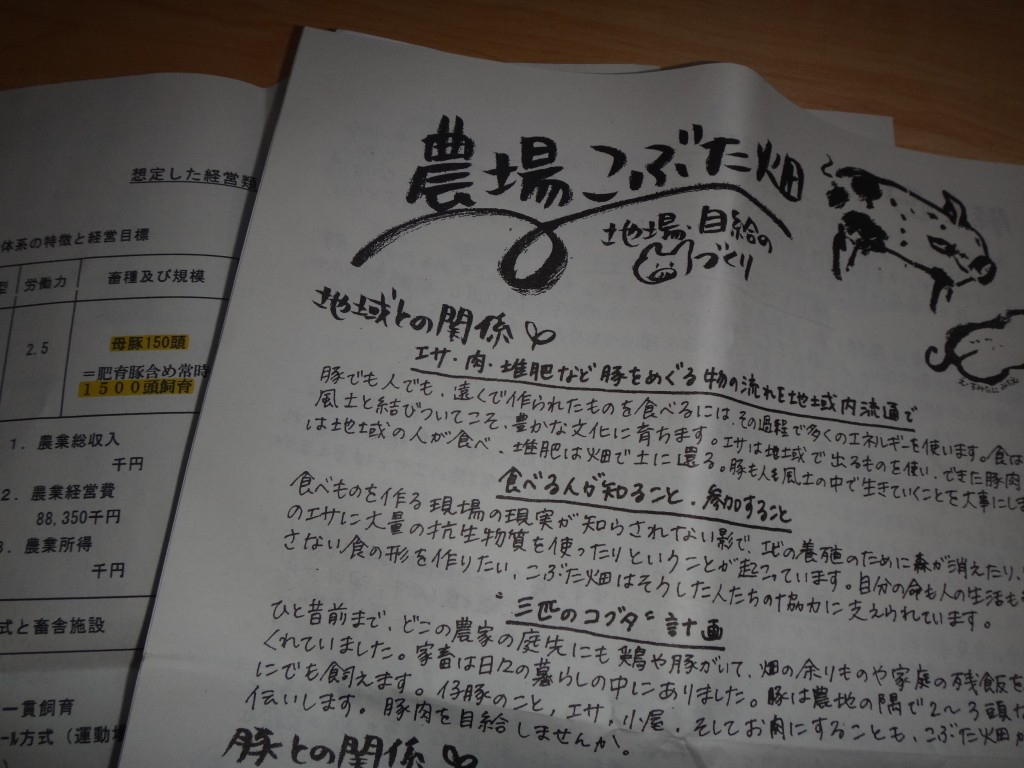 想定した経営類
体系の特徴と経営目標
型 労働力 畜種及び規模
2.5
母豚150頭
＝肥育豚含め常時
１５００頭飼育
1. 農業総収入
千円
2. 農業経営費
88,350千円
3. 農業所得
千円
式と畜舎施設
一貫飼育
ール方式（運動場
農場 こぶた畑
地場・自給の
づくり
地域との関係
エサ・肉・堆肥など豚をめぐる物の流れを地域内流通で
豚でも人でも、遠くで作られたものを食べるには、その過程で多くのエネルギーを使います。食は
風土と結びついてこそ、豊かな文化に育ちます。エサは地域で出るものを使い、できた豚肉
は地域の人が食べ、堆肥は畑で土に還る。豚も人も風土の中で生きていくことを大事にしま
食べる人が知ること、参加すること
食べものを作る現場の現実が知らされない影で、エビの養殖のために森が消えたり、
のエサに大量の抗生物質を使ったりということが起こっています。自分の命も人の生活も
さない食の形を作りたい、こぶた畑はそうした人たちの協力に支えられています。
"三匹のコブタ"計画
ひと昔前まで、どこの農家の庭先にも鶏や豚がいて、畑の余りものや家庭の残飯を
くれていました。家畜は日々の暮らしの中にありました。豚は農地の隅で2〜3頭な
にでも飼えます。仔豚のこと、エサ、小屋、そしてお肉にすることも、こぶた畑が
伝いします。豚肉を自給しませんか。
豚との関係